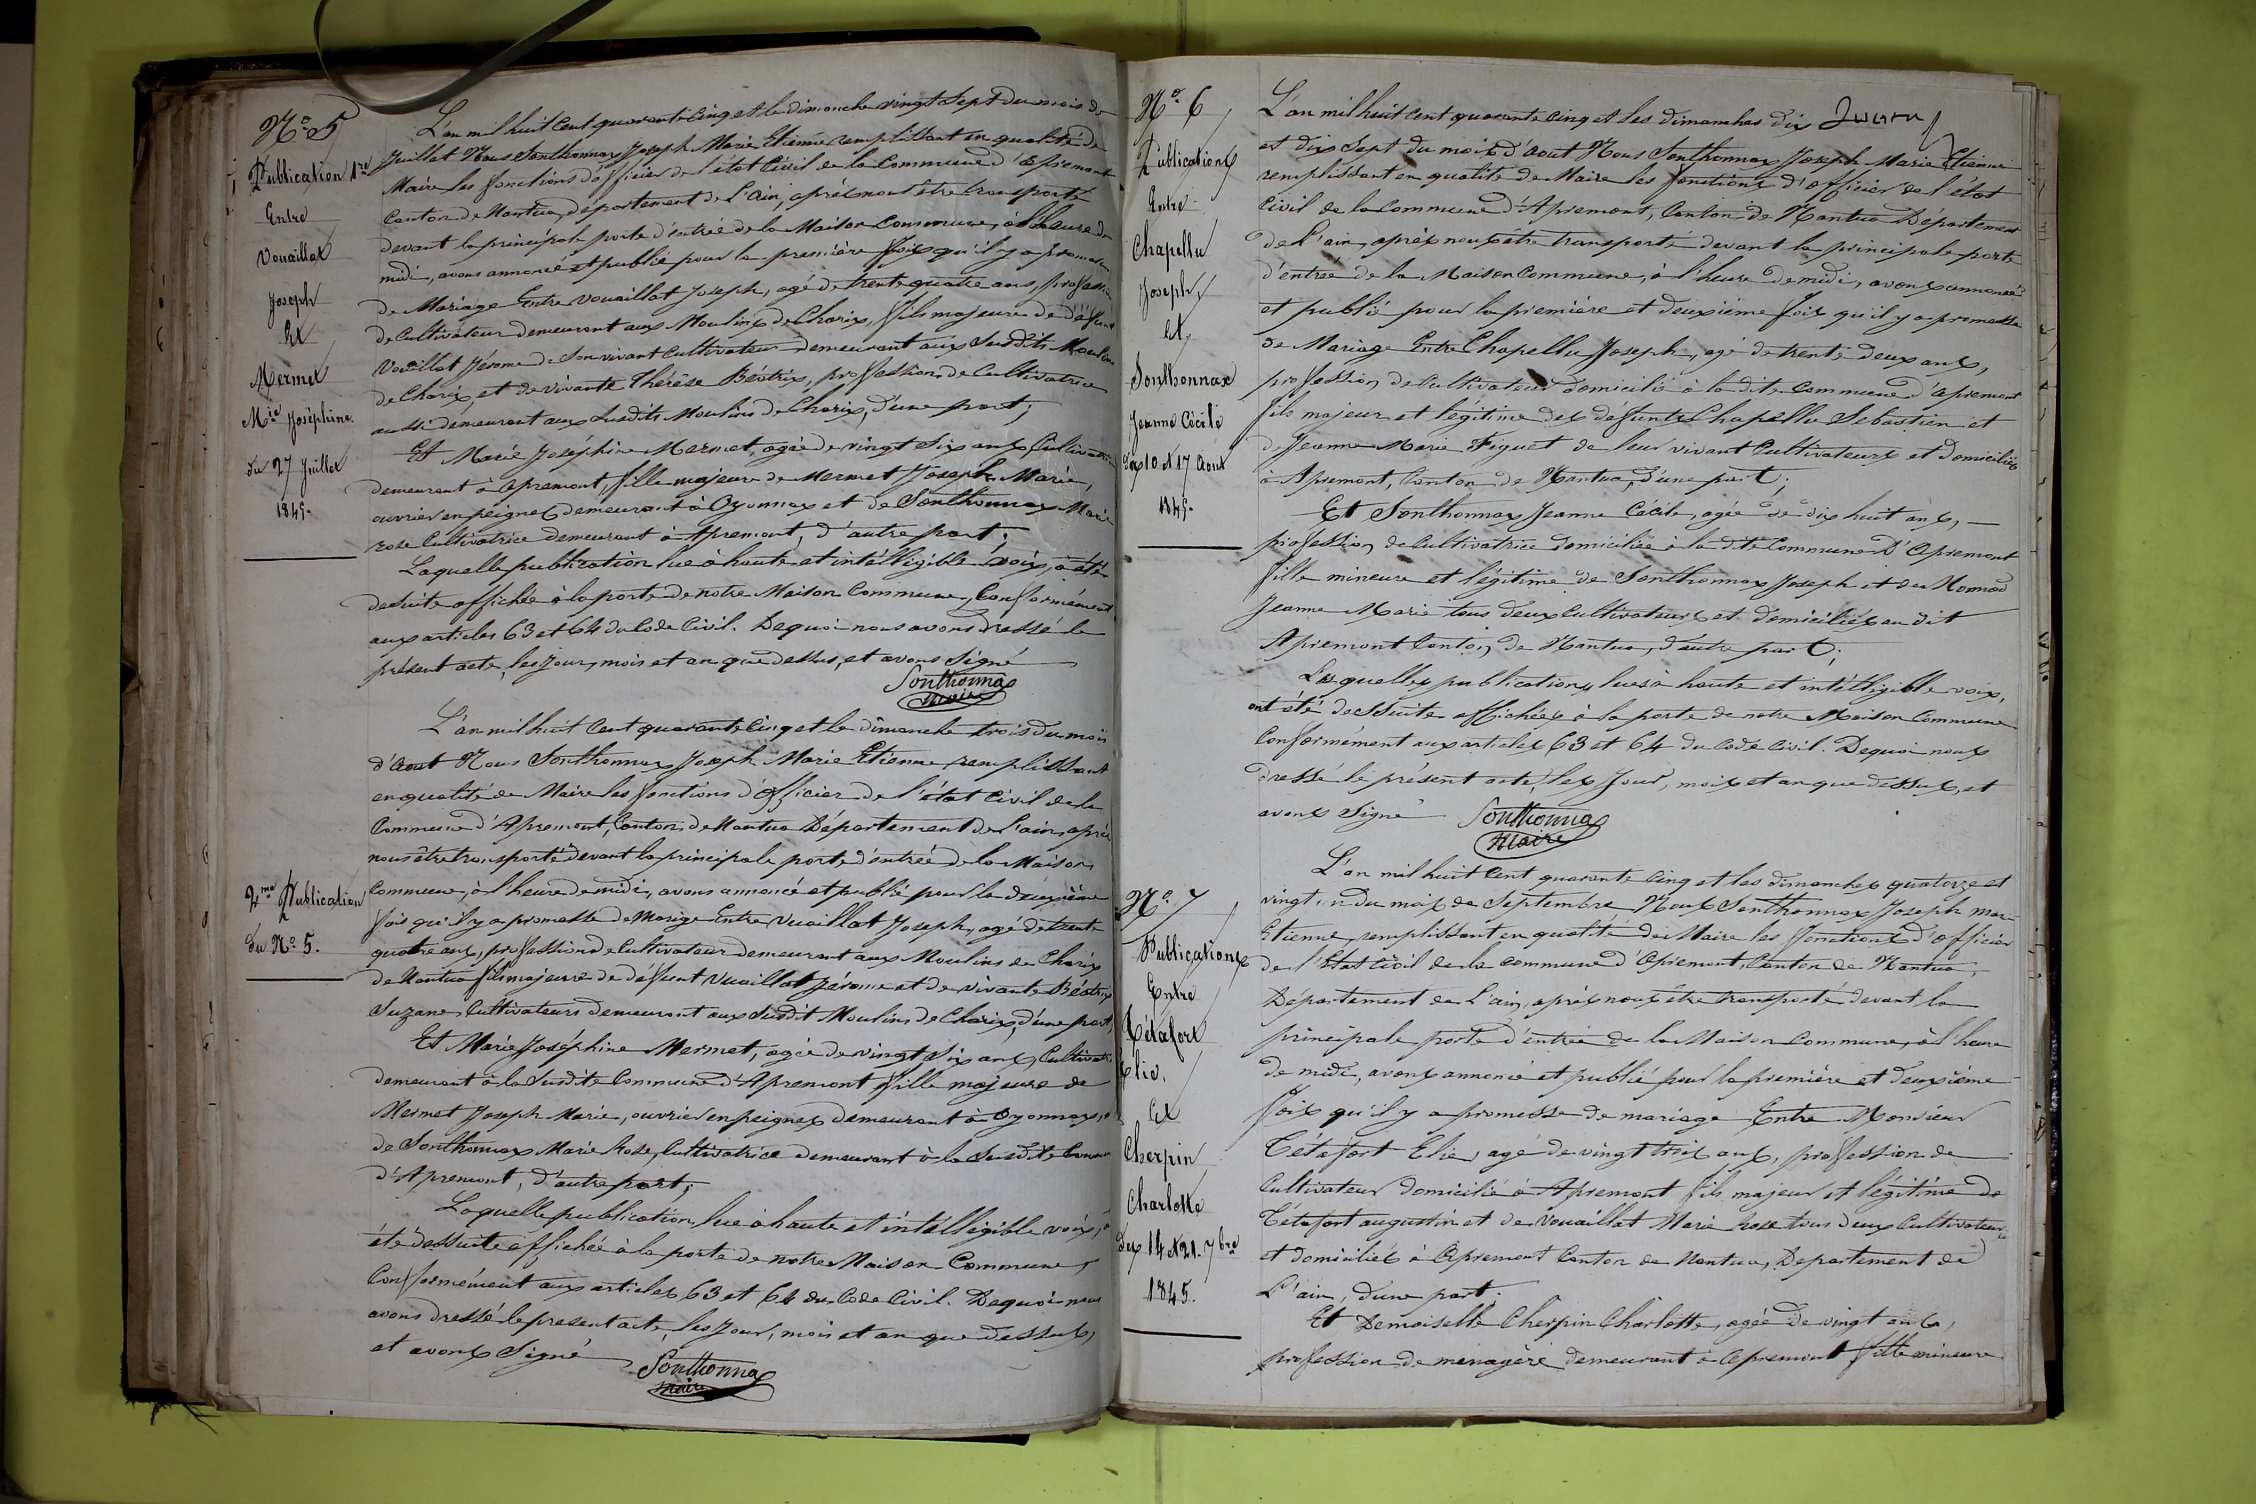 N.o 5
Publication 1re
Entre
Vouaillat
Joseph
Et
Mermet
Mie Joséphine
du 27 Juillet
1845.
L'an mil huit Cent quarante Cinq et le dimanche vingt Sept du mois de
Juillet Nous Sonthonnax Joseph Marie Etienne remplissant en qualité de
Maire les fonctions d'officier de l'état Civil de la Commune d'Apremont
Canton de Nantua, département de l'Ain, après nous être transporté
devant la principale porte d'entrée de la Maison Commune, à l'heure de
midi, avons annoncé et publié pour la première fois qu'il y a promesse
de Mariage Entre Vouaillat Joseph, agé de trente quatre ans, profession
de Cultivateur demeurant aux Moulins de Charix, fils majeure de défunt
Vouaillat Jérome de son vivant Cultivateur demeurant aux Susdits Moulins
de Charix, et de vivante Thérèse Béatrix, profession de Cultivatrice
aussi demeurant aux Susdits Moulins de Charix, d'une part;
Et Marie Joséphine Mermet, agée de vingt Six ans Cultivatrice
demeurant à Apremont, fille majeure de Mermet Joseph Marie,
ouvrier en peignes demeurant à Oyonnax et de Sonthonnax Marie
rose Cultivatrice demeurant à Apremont, d'autre part;
Laquelle publication lue à haute et intélligible voix, a été
desuite affichée à la porte de notre Maison Commune, Conformément
aux articles 63 et 64 du Code Civil. Dequoi nous avons dressé le
présent acte, les jour, mois et an que dessus, et avons Signé
Sonthonnax
maire
2me Publication
du N.o 5.
L'an mil huit Cent quarante Cinq et le dimanche trois du mois
d'Aout Nous Sonthonnax Joseph Marie Etienne remplissant
en qualité de Maire les fonctions d'Officier de l'état Civil de la
Commune d'Apremont, Canton de Nantua Département de l'ain, après
nous être transporté devant la principale porte d'entrée de la Maison
Commune, à l'heure de midi, avons annoncé et publié pour la deuxième
fois qu'il y a promesse de Mariage Entre Vuaillat Joseph, agé de trente
quatre ans, profession de Cultivateur demeurant aux Moulins de Charix
de Nantua fils majeure de deffunt Vuaillat Jérome et de vivante Béatrix
Suzane Cultivateurs demeurant aux Susdit Moulins de Charix, d'une part
Et Marie Joséphine Mermet, agée de vingt Six ans, Cultivatrice
demeurant à la Susdite Commune d'Apremont fille majeure de
Mermet Joseph Marie, ouvrier en peignes demeurant à Oyonnax, et
de Sonthonnax Marie Rose, Cultivatrice demeurant à la Susdite Commune
d'Apremont, d'autre part;
Laquelle publication lue à haute et intélligible voix, a
été dessuite affichée à la porte de notre Maison Commune,
Conformément aux articles 63 et 64 du Code Civil. Dequoi nous
avons dressé le present acte, les Jour, mois et an que dessus,
et avons Signé
Sonthonnax
maire
N.o 6
Publications
Entre
Chapellu
Joseph,
et
Sonthonnax
Jeanne Cécile
Des 10 et 17 Aout
1845.
L'an mil huit Cent quarante Cinq et les dimanches dix
et dix Sept du mois d'aout Nous Sonthonnax Joseph Marie Etienne
remplissant en qualité de Maire les fonctions d'officier de l'état
Civil de la Commune d'Apremont, Canton de Nantua Département
de l'ain, après nous être transporté devant la principale porte
d'entrée de la Maison Commune, à l'heure de midi, avons annoncé
et publié pour la première et deuxième fois qu'il y a promesse
de Mariage Entre Chapellu Joseph, agé de trente deux ans,
profession de Cultivateur domicilié à la dite Commune d'Apremont
fils majeur et légitime des défunts Chapellu Sebastien et
de Jeanne Marie Figuet de leur vivant Cultivateurs et domiciliés
à Apremont, Canton de Nantua, d'une part;
Et Sonthonnax Jeanne Cécile, agée de dix huit ans,
profession de Cultivatrice domiciliée à la dite Commune d'Apremont
fille mineure et légitime de Sonthonnax Joseph et de
Jeanne Marie tous deux Cultivateurs et domiciliés au dit
Apremont Canton de Nantua, d'autre part;
Lesquelles publications lues à haute et intélligible voix,
ont été dessuite affichées à la porte de notre Maison Commune
Conformément aux articles 63 et 64 du Code Civil. Dequoi nous
dressé le présent acte, les Jour, mois et an que dessus, et
avons Signé
Sonthonnax
maire
N.o 7
Publications
Entre
Tétafort
Elie.
Et
Cherpin
Charlotte
Des 14 et 21. 7bre
1845.
L'an mil huit Cent quarante Cinq et les dimanches quatorze et
vingt un du mois de Septembre Nous Sonthonnax Joseph Marie
Etienne, remplissant en qualité de Maire les fonctions d'officier
de l'Etat Civil de la commune d'Apremont, Canton de Nantua,
Département de l'ain, après nous être transporté devant la
principale porte d'entrée de la Maison Commune, à l'heure
de midi, avons annoncé et publié pour la première et deuxième
fois qu'il y a promesse de mariage Entre Monsieur
Tétafort Elie, agé de vingt trois ans, profession de
Cultivateur domicilié à Apremont fils majeur et légitime de
Tétafort augustin et de Vouaillat Marie rose tous deux Cultivateurs
et domiciliés à Apremont Canton de Nantua, Departement de
L'ain, d'une part;
Et Demoiselle Cherpin Charlotte, agée de vingt ans,
profession de menagère demeurant à Apremont fille mineure